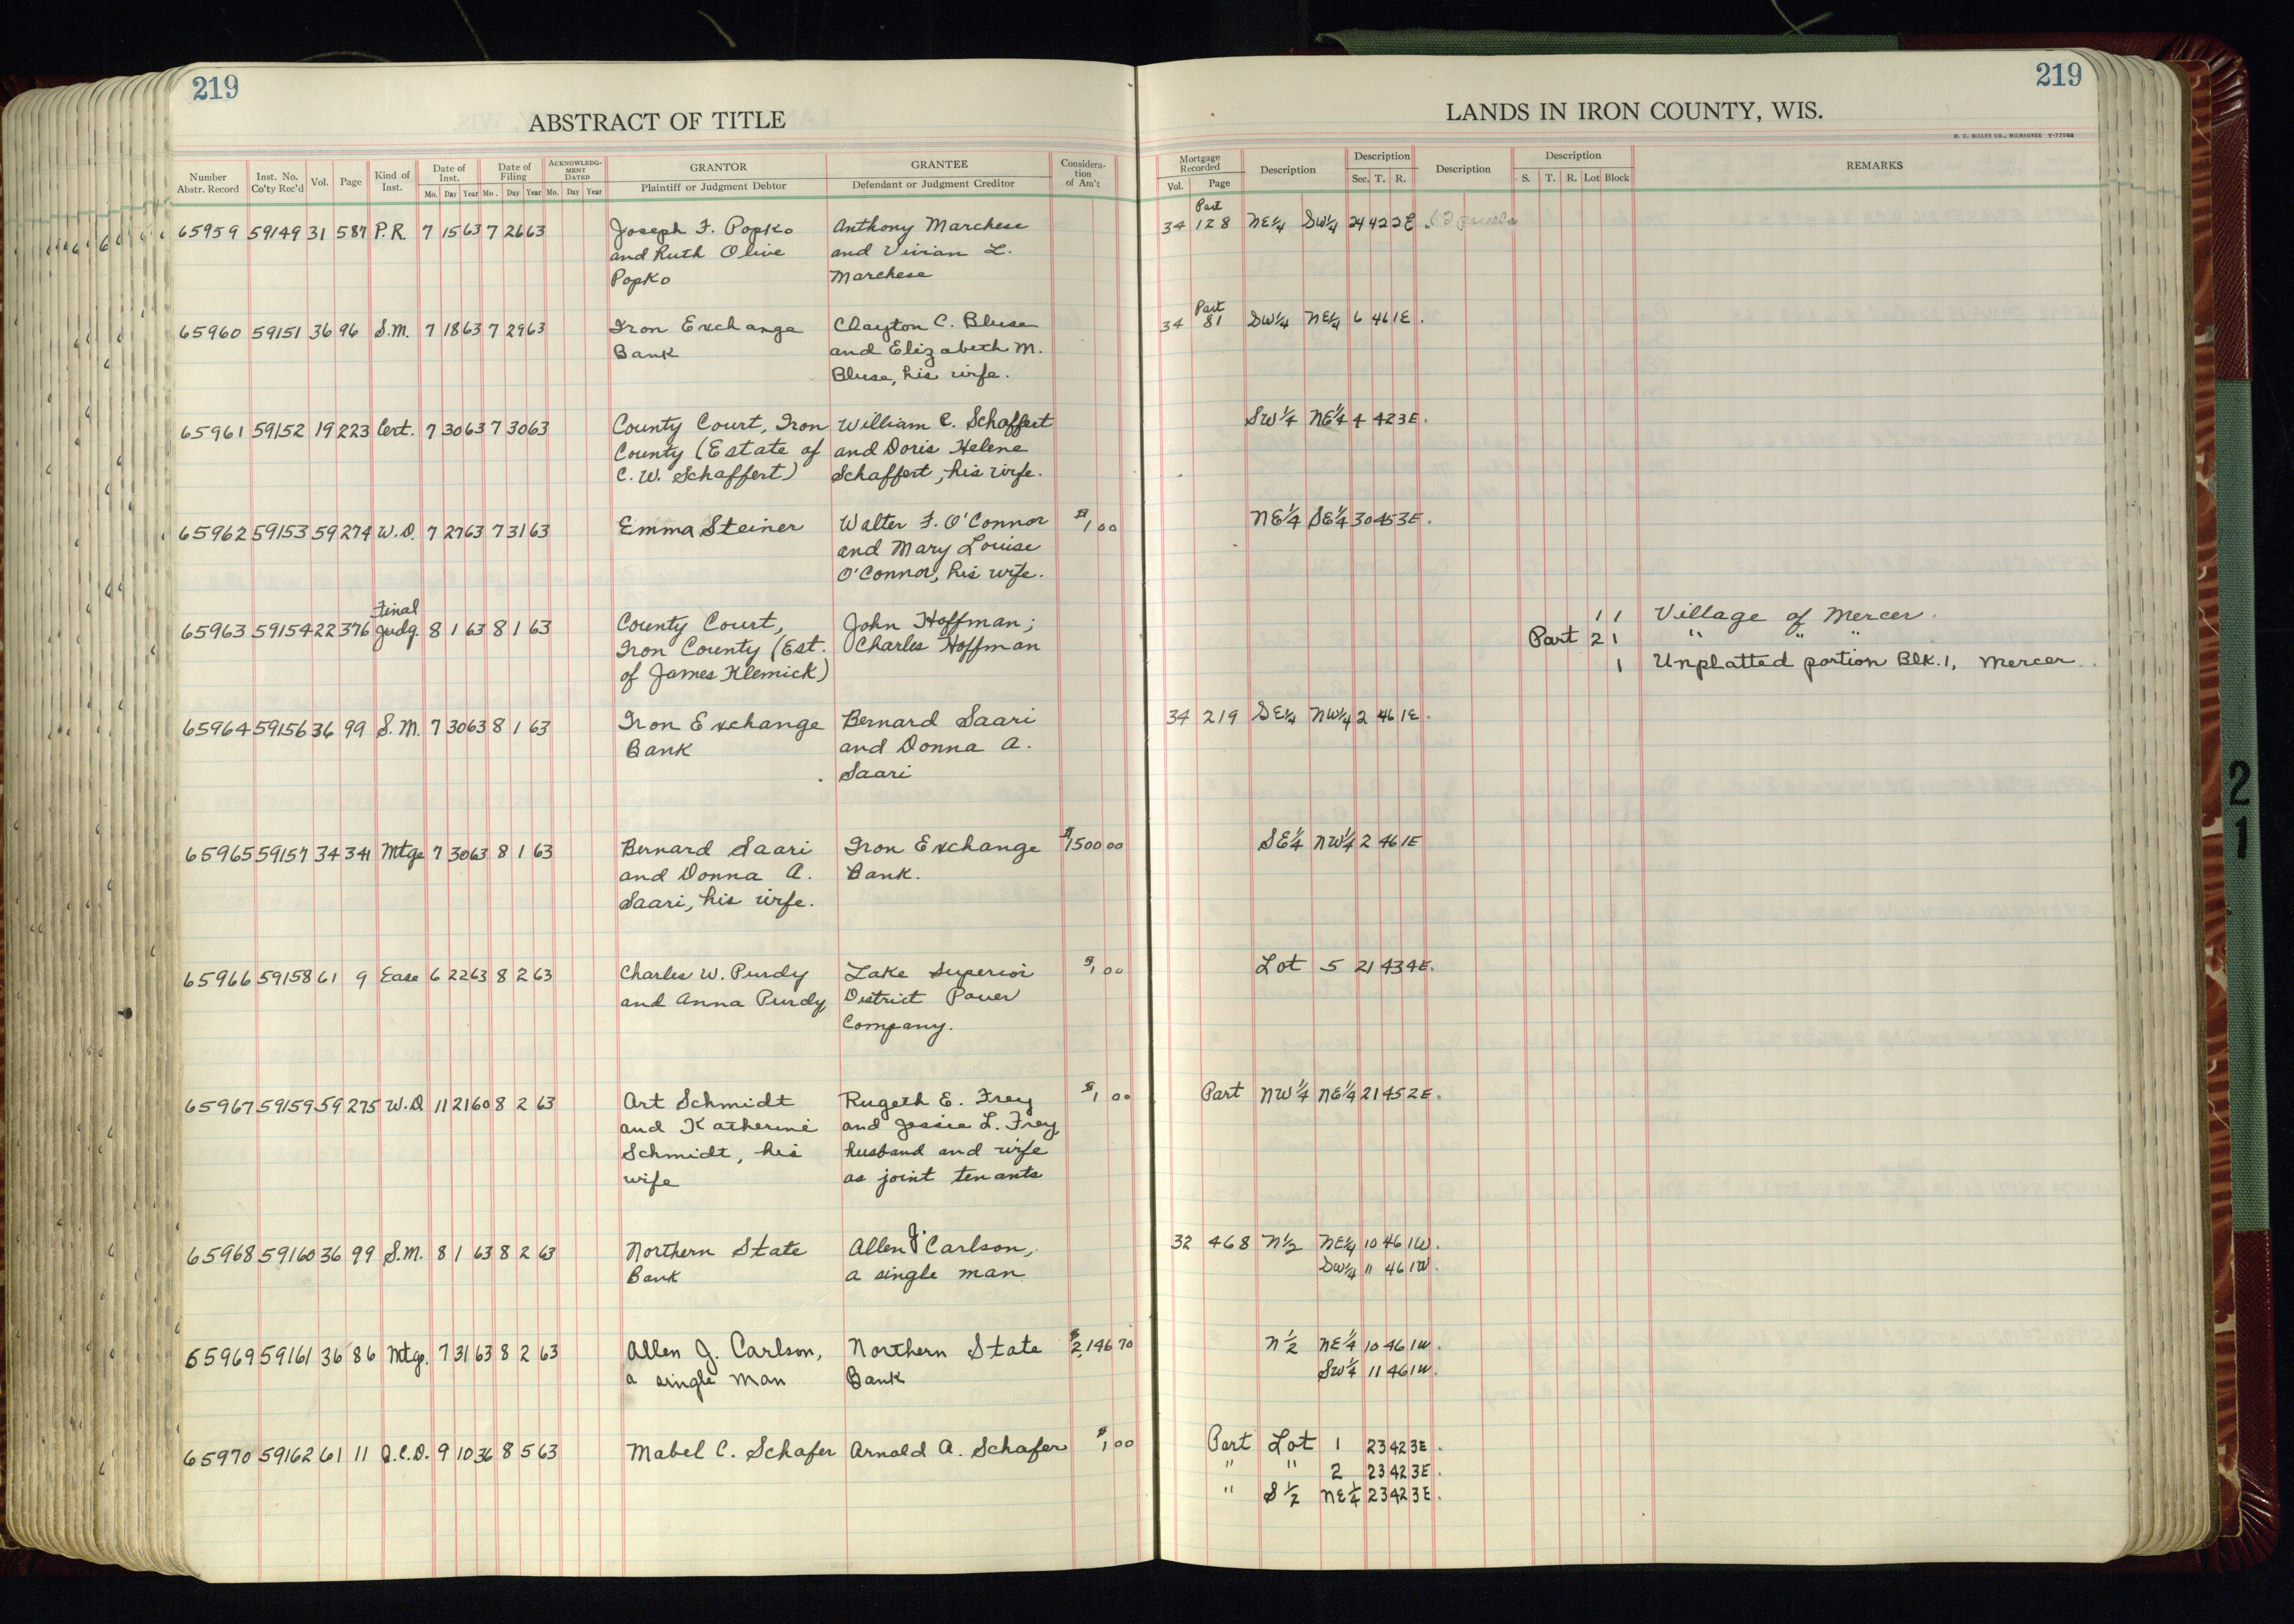 219
219
ABSTRACT OF TITLE
LANDS IN IRON COUNTY, WIS.
H. C. MILLER CO., MILWAUKEE Y-77068
Number Abstr. Record
Inst. No. Co'ty Rec'd
Vol.
Page
Kind of Inst.
Date of Inst.
Mo. Day Year
Date of Filing
Mo. Day Year
ACKNOWLEDGMENT DATED
Mo. Day Year
GRANTOR
Plaintiff or Judgment Debtor
GRANTEE
Defendant or Judgment Creditor
Consideration of Am't
Mortgage Recorded
Vol. Page
Description
Description
Sec. T. R.
Description
Description
S. T. R. Lot Block
REMARKS
Part
65959 59149 31 587 P.R. 7 15 63 7 26 63 Joseph F. Popko Anthony Marchese 34 128 NE¼ SW¼ 24 42 2E
and Ruth Olive and Vivian L.
Popko Marchese
Part
65960 59151 36 96 S.M. 7 18 63 7 29 63 Iron Exchange Clayton C. Bluse 34 81 SW¼ NE¼ 6 46 1E.
Bank and Elizabeth M.
Bluse, his wife.
65961 59152 19 223 Cert. 7 30 63 7 30 63 County Court, Iron William C. Schaffert SW¼ NE¼ 4 42 3E.
County (Estate of and Doris Helene
C. W. Schaffert) Schaffert, his wife.
65962 59153 59 274 W.D. 7 27 63 7 31 63 Emma Steiner Walter F. O'Connor $1.00 NE¼ SE¼ 30 45 3E.
and Mary Louise
O'Connor, his wife.
Final
65963 59154 22 376 Judg. 8 1 63 8 1 63 County Court, John Hoffman; 1 1 Village of Mercer.
Iron County (Est. Charles Hoffman Part 2 1 " " "
of James Klemick) 1 Unplatted portion Blk. 1, Mercer.
65964 59156 36 99 S.M. 7 30 63 8 1 63 Iron Exchange Bernard Saari 34 219 SE¼ NW¼ 2 46 1E.
Bank and Donna A.
Saari
65965 59157 34 341 Mtge 7 30 63 8 1 63 Bernard Saari Iron Exchange $1500 00 SE¼ NW¼ 2 46 1E
and Donna A. Bank.
Saari, his wife.
65966 59158 61 9 Ease 6 22 63 8 2 63 Charles W. Purdy Lake Superior $1 00 Lot 5 21 43 4E.
and Anna Purdy District Power
Company.
65967 59159 59 275 W.D 11 21 60 8 2 63 Art Schmidt Rugeth E. Frey $1 00 Part NW¼ NE¼ 21 45 2E.
and Katherine and Jessie L. Frey
Schmidt, his husband and wife
wife as joint tenants
65968 59160 36 99 S.M. 8 1 63 8 2 63 Northern State Allen J. Carlson, 32 468 N½ NE¼ 10 46 1W.
Bank a single man SW¼ " 46 1W.
65969 59161 36 86 Mtge. 7 31 63 8 2 63 Allen J. Carlson, Northern State $2,146 70 N½ NE¼ 10 46 1W.
a single man Bank SW¼ 11 46 1W.
65970 59162 61 11 Q.C.D. 9 10 36 8 5 63 Mabel C. Schafer Arnold A. Schafer $1 00 Part Lot 1 23 42 3E.
" " 2 23 42 3E.
" S½ NE¼ 23 42 3E.
21